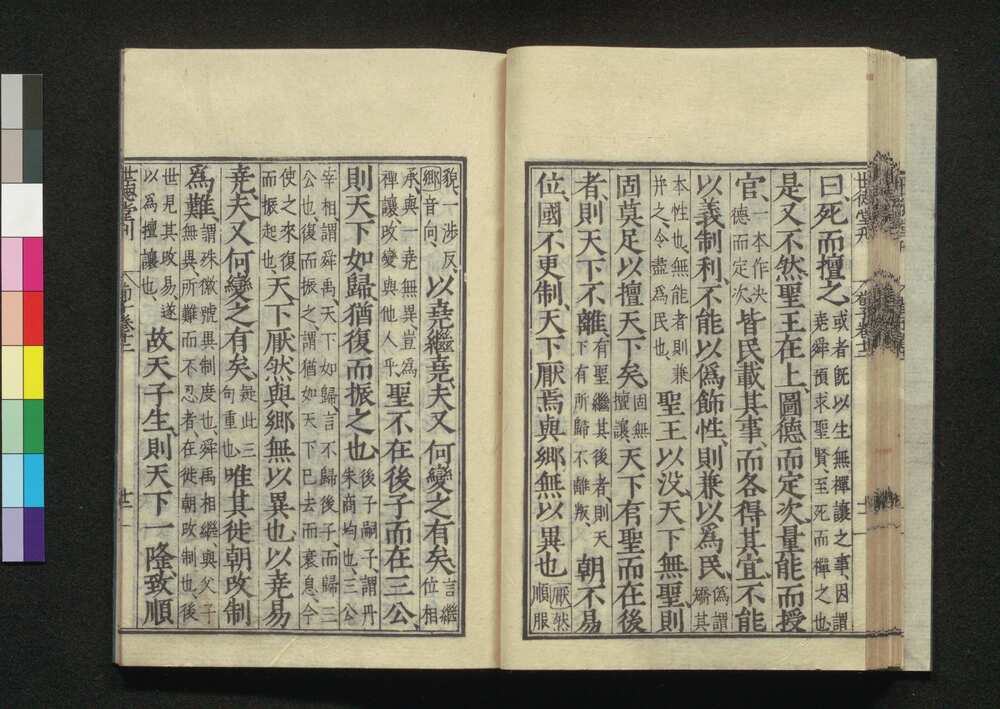 曰、死而擅之、或者既以生無禪讓之事、因謂
堯舜預求聖賢、至死而禪之也、
是又不然、聖王在上、圖德而定次、量能而授
官、一本作決德而定次、皆民載其事、而各得其宜、不能
以義制利、不能以偽飾性、則兼以為民、偽謂矯其
本性也、無能者則兼并之、令盡為民也、聖王以沒、天下無聖、則
固莫足以擅天下矣、固無擅讓天下有聖而在後
者、則天下不離、有聖繼其後者、則天下有所歸不離叛、朝不易
位、國不更制、天下厭焉與鄉無以異也、厭然順服
貌、一涉反、鄉音向、以堯繼堯、夫又何變之有矣、言繼位相
承、與一堯無異、豈為禪讓改變與他人乎、聖不在後子而在三公、
則天下如歸、猶復而振之也、後子嗣子、謂丹朱商均也、三公
宰相、謂舜禹、天下如歸、言不歸後子而歸三公也、復而振之、謂猶如天下已去而衰息、今
使之來復而振起也、天下厭然與鄉無以異也、以堯易
堯、夫又何變之有矣、疑此三句重也、唯其徙朝改制
為難、謂殊徽號異制度也、舜禹相繼與父子無異、所難而不忍者在徙朝改制也、後
世見其改易遂以為擅讓也、故天子生、則天下一隆致順
世德堂刊
荀子卷十二